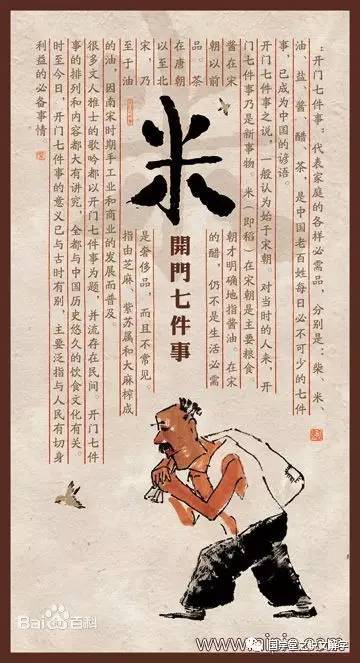 ：开门七件事：代表家庭的各样必需品，分别是：柴、米、
油、盐、酱、醋、茶，是中国老百姓每日必不可少的七件
事，已成为中国的谚语。
开门七件事之说，一般认为始于宋朝。对当时的人来，开
门七件事乃是新事物。米（即稻）在宋朝是主要粮食
酱在宋
朝才明确地指酱油。在宋
朝以前
的醋，仍不是生活必需
品。茶
在唐朝
以至北
宋，乃
是奢侈品，而且不常见。
至于油
指由芝麻、紫苏属和大麻榨成
的油，因南宋时期手工业和商业的发展而普及。
很多文人雅士的歌吟都以开门七件事为题，并流存在民间。开门七件
事的排列和内容都大有讲究，全都与中国历史悠久的饮食文化有关。
时至今日，开门七件事的意义已与古时有别，主要泛指与人民有切身
利益的必备事情。
米
開門七件事
Bai百科